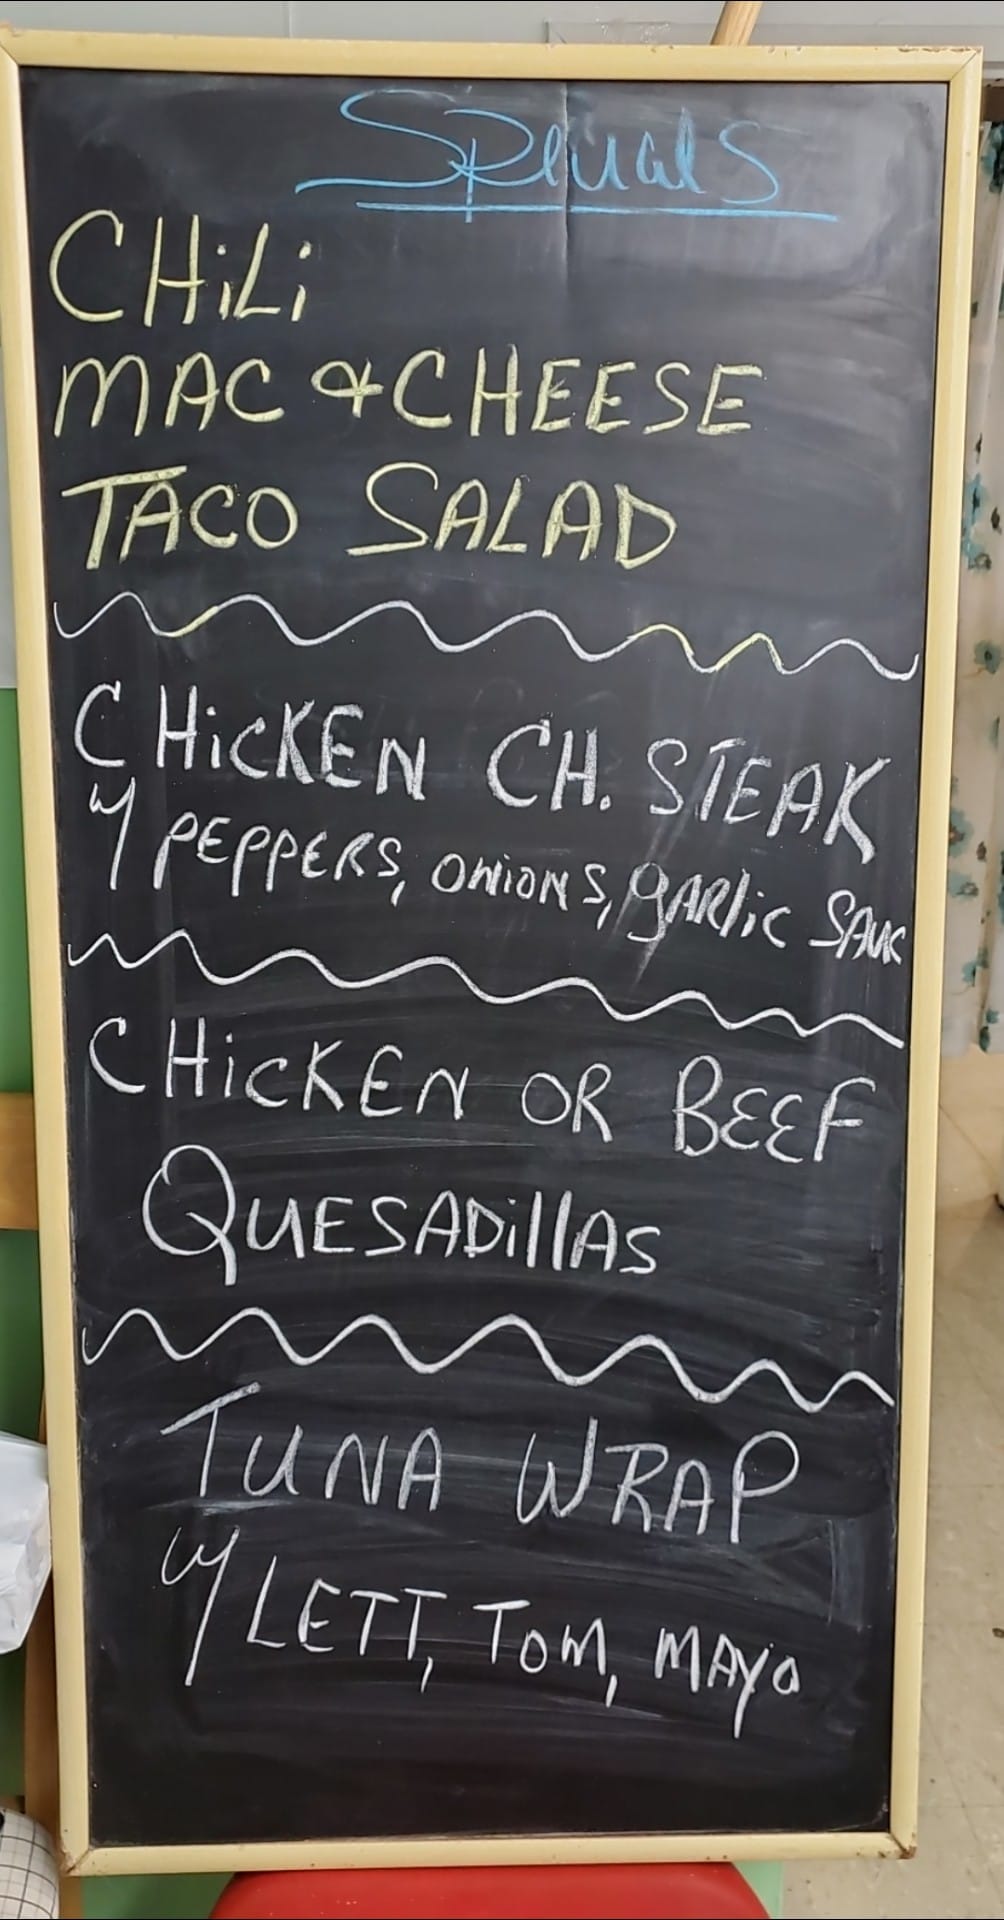 Specials
CHiLi
MAC & CHEESE
TACO SALAD
CHiCKEN CH. STEAK
w/ PEPPERS, ONiONS, GARlic SAUC
CHiCKEN OR BEEF
QUESADillAS
TUNA WRAP
w/ LETT, TOM, MAYO